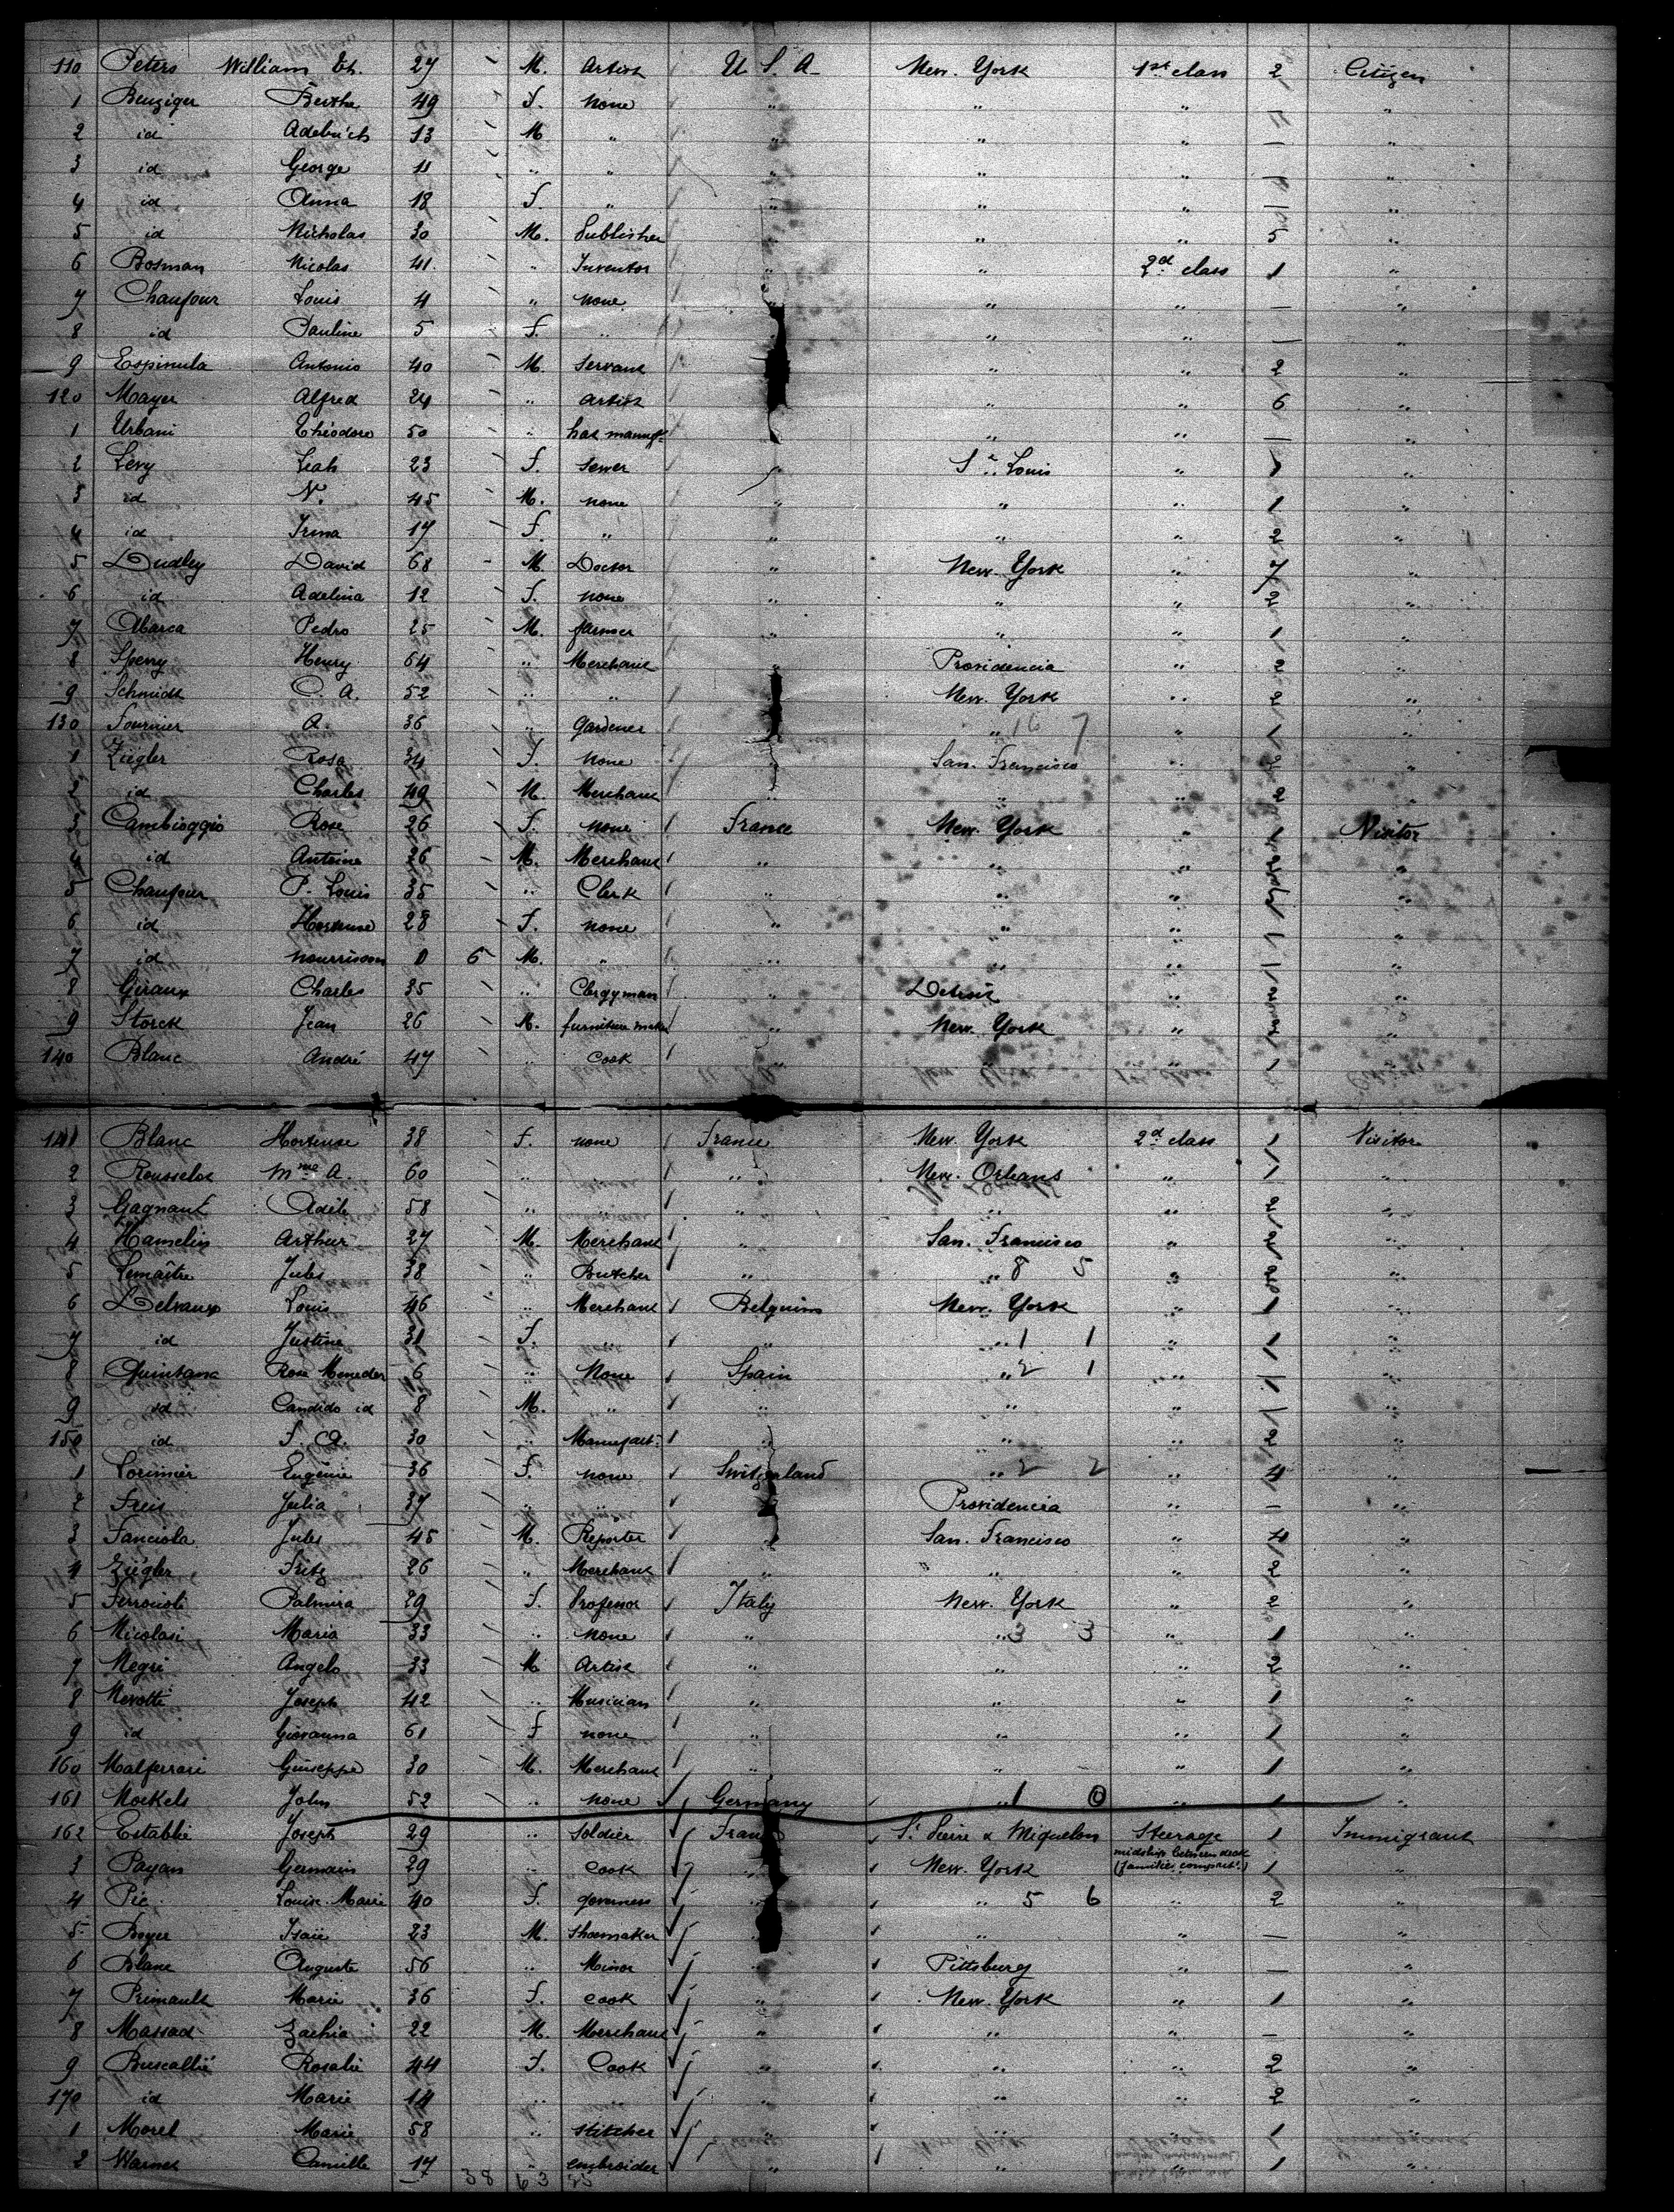 110 Peters William Th. 27 M. Artist U. S. A New. York 1st class 2 Citizen
1 Benziger Bertha 49 F. none " " " "
2 id Adelrich 13 M " " " " — "
3 id George 11 " " " " " "
4 id Anna 18 F. " " " " "
5 id Nicholas 30 M. Publisher " " 5 "
6 Bosman Nicolas 41. " Inventor " " 2d class 1 "
7 Chaufour Louis 4 " none " " — "
8 id Pauline 5 F. " " " "
9 Espinula Antonio 40 M. Servant " " 2 "
120 Mayer Alfred 24 " artist " " 6 "
1 Urbani Théodore 50 " hat manuf. " " — "
2 Levy Leah 23 F. Sewer St Louis " 1 "
3 id N. 45 M. none " " " 1 "
4 id Irma 17 F. " " " " 2 "
5 Dudley David 68 M Doctor " New. York " 7 "
6 id Adelina 12 F. none " " " 2 "
7 Abarca Pedro 25 M. farmer " " " 1 "
8 Sperry Henry 64 " Merchant " Providencia " 2 "
9 Schmidt C. A. 52 " " New. York " 2 "
130 Fournier A. 36 " Gardener " 16 7 " 1 "
1 Ziegler Rosa 34 F. none San. Francisco " "
2 id Charles 49 M. Merchant " " " 2 "
3 Cambioggio Rose 26 F. none France New. York " 1 Visitor
4 id Antoine 26 M. Merchant " " " "
5 Chaufour P. Louis 35 " Clerk " " " "
6 id Hortense 28 F. none " " " 1 "
7 id nourrisson 0 6 M. " " " " 1 "
8 Giraux Charles 35 " Clergyman " Detroit " 2 "
9 Storck Jean 26 M. furniture maker " New. York " 2 "
140 Blanc André 47 " Cook " " 1 "
141 Blanc Hortense 38 F. none France New. York 2d class 1 Visitor
2 Rousselot Mme A. 60 " " New. Orleans " 1 "
3 Gagnant Adèle 58 " " " " " 2 "
4 Hamelin Arthur 27 M. Merchant " San. Francisco " 2 "
5 Lemaître Jules 38 " Butcher " " 8 5 " "
6 Delvaux Louis 46 " Merchant Belgium New. York " 1 "
7 id Justine 31 F. " " " 1 1 " 1 "
8 Quintana Rosa Menedez 6 " None Spain " 2 1 " 1 "
9 id Candido id 8 M. " " " " 1 "
150 id F. A. 30 " Manufact. " " " 2 "
1 Lorimier Eugénie 36 F. none Switzerland " 2 2 " 4 "
2 Freis Julia 37 " " Providencia " — "
3 Fanciola Jules 45 M. Reporter San. Francisco " 4 "
4 Ziegler Fritz 26 " Merchant " " 2 "
5 Palmira 29 F. Profesor Italy New. York " 2 "
6 Nicolasi Maria 33 " none " " 3 3 " 1 "
7 Negri Angelo 33 M Artist " " " 2 "
8 Joseph 42 " Musician " " " 1 "
9 id Giovanna 61 F none " " " 1 "
160 Malferrari Guiseppe 30 M. Merchant " " " 1 "
161 Mockels John 52 " none Germany " 1 0 " 1 "
162 Establie Joseph 29 " Soldier France St Pierre & Miquelon Steerage 1 Immigrant
midship between deck
3 Payan Germain 29 " cook New. York (families compart.) 1 "
4 Pic Louise-Marie 40 F. governess " 5 6 " 2 "
5 Boyer Isaïe 23 M. Shoemaker " " " — "
6 Blanc Auguste 56 " Minor " Pittsburg " — "
7 Primault Marie 36 F. cook " New. York " 1 "
8 Massad Zachia 22 M. Merchant " " " — "
9 Buscallié Rosalie 44 F. Cook " " " 2 "
170 id Marie 14 " " " " " 2 "
1 Morel Marie 58 " Stitcher " " " 1 "
2 Warnet Camille 17 " embroider " " " 1 "
38 63 25